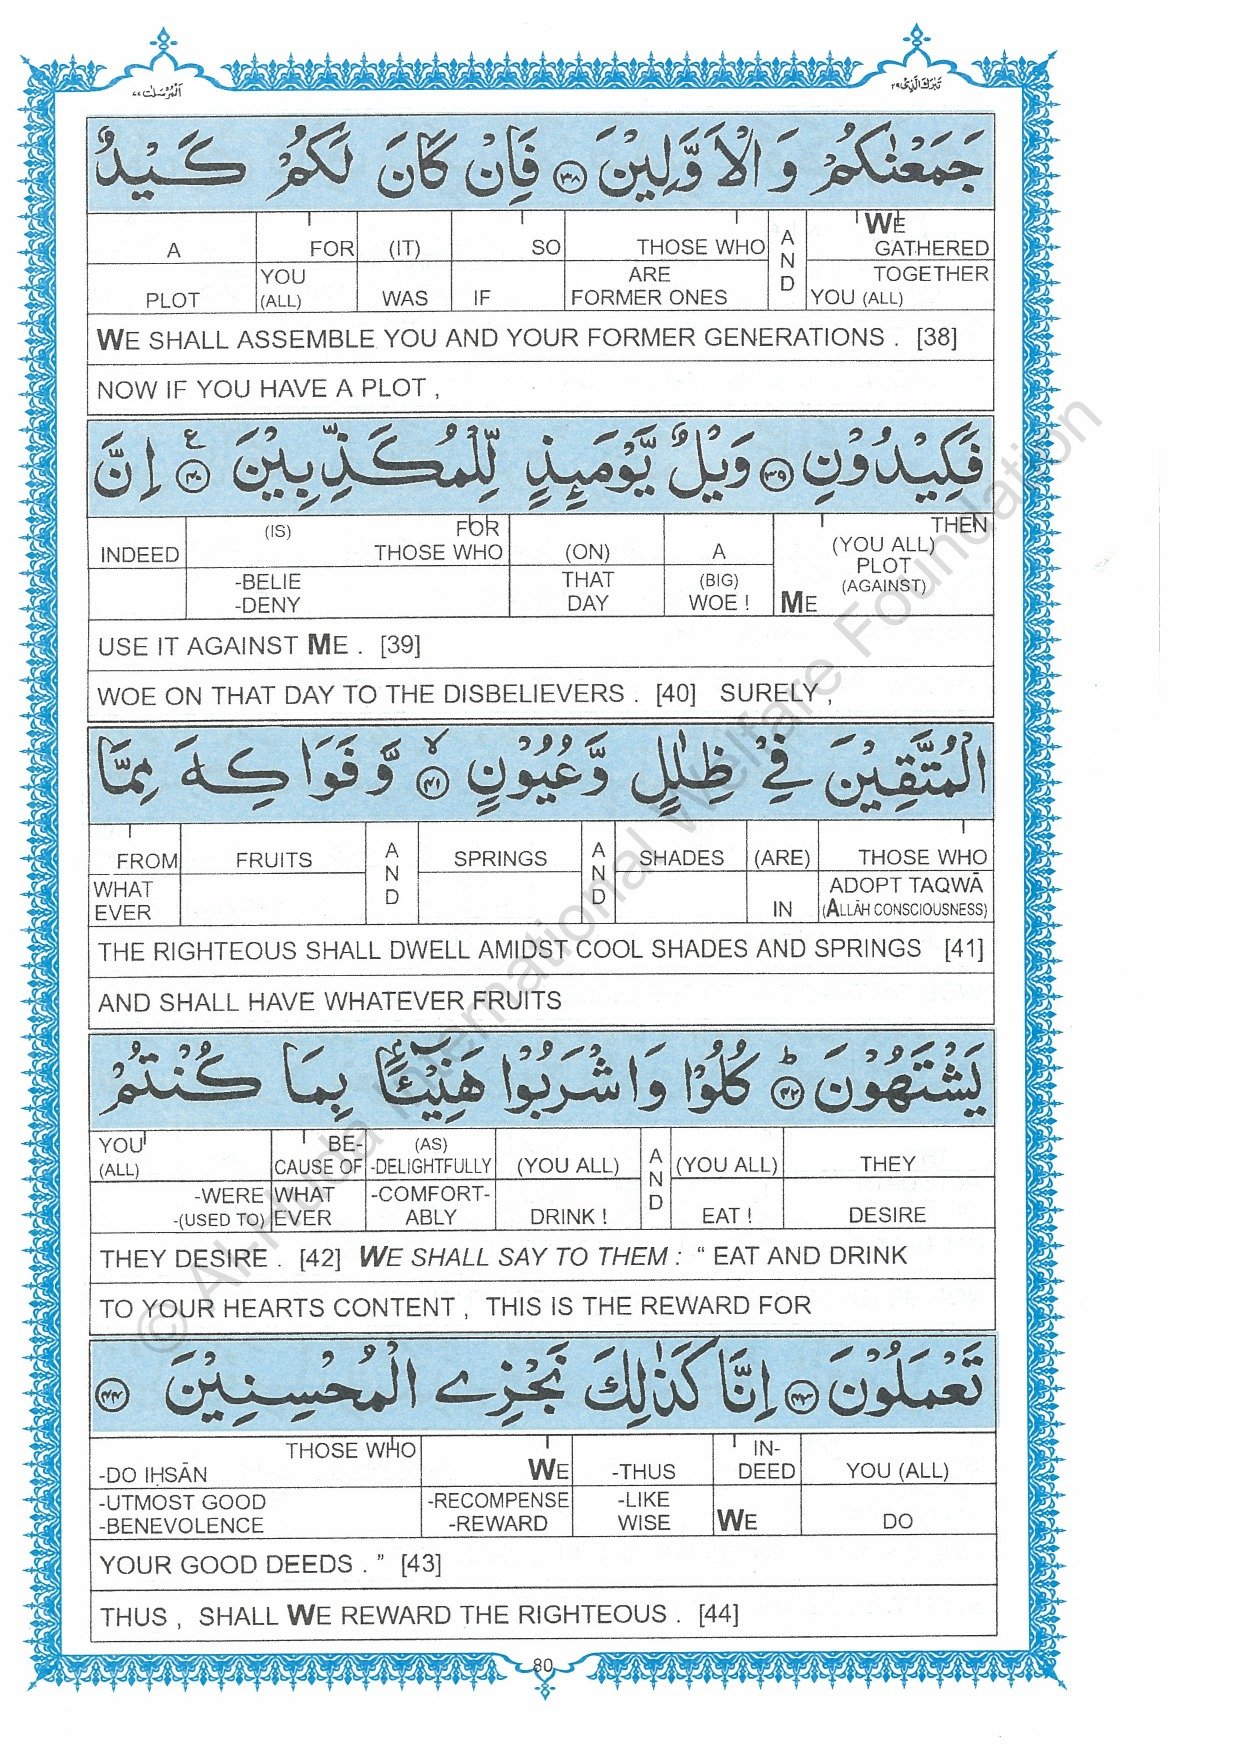 اَلْمُرْسَلٰت ٧٧
تَبٰرَكَ الَّذِیْ ٢٩
جَمَعْنٰكُمْ وَ الْاَوَّلِیْنَ ۝٣٨ فَاِنْ كَانَ لَكُمْ كَیْدٌ
A FOR (IT) SO THOSE WHO AND WE GATHERED
PLOT YOU (ALL) WAS IF ARE FORMER ONES TOGETHER YOU (ALL)
WE SHALL ASSEMBLE YOU AND YOUR FORMER GENERATIONS . [38]
NOW IF YOU HAVE A PLOT ,
فَكِیْدُوْنِ ۝٣٩ وَیْلٌ یَّوْمَىِٕذٍ لِّلْمُكَذِّبِیْنَ ۝٤٠ ع اِنَّ
INDEED (IS) FOR THOSE WHO (ON) A THEN (YOU ALL) PLOT (AGAINST) ME
-BELIE -DENY THAT DAY (BIG) WOE !
USE IT AGAINST ME . [39]
WOE ON THAT DAY TO THE DISBELIEVERS . [40] SURELY ,
الْمُتَّقِیْنَ فِیْ ظِلٰلٍ وَّعُیُوْنٍ ۝٤١ۙ وَّ فَوَاكِهَ مِمَّا
FROM FRUITS AND SPRINGS AND SHADES (ARE) THOSE WHO
WHAT EVER IN ADOPT TAQWĀ (ALLĀH CONSCIOUSNESS)
THE RIGHTEOUS SHALL DWELL AMIDST COOL SHADES AND SPRINGS [41]
AND SHALL HAVE WHATEVER FRUITS
یَشْتَهُوْنَ ۝٤٢ؕ كُلُوْا وَ اشْرَبُوْا هَنِیْٓـًٔۢا بِمَا كُنْتُمْ
YOU (ALL) BE- CAUSE OF (AS) -DELIGHTFULLY (YOU ALL) AND (YOU ALL) THEY
-WERE -(USED TO) WHAT EVER -COMFORT- ABLY DRINK ! EAT ! DESIRE
THEY DESIRE . [42] WE SHALL SAY TO THEM : “ EAT AND DRINK
TO YOUR HEARTS CONTENT , THIS IS THE REWARD FOR
تَعْمَلُوْنَ ۝٤٣ اِنَّا كَذٰلِكَ نَجْزِی الْمُحْسِنِیْنَ ۝٤٤
-DO IḤSĀN THOSE WHO WE -THUS IN- DEED YOU (ALL)
-UTMOST GOOD -BENEVOLENCE -RECOMPENSE -REWARD -LIKE WISE WE DO
YOUR GOOD DEEDS . ” [43]
THUS , SHALL WE REWARD THE RIGHTEOUS . [44]
80
© Al-Huda International Welfare Foundation